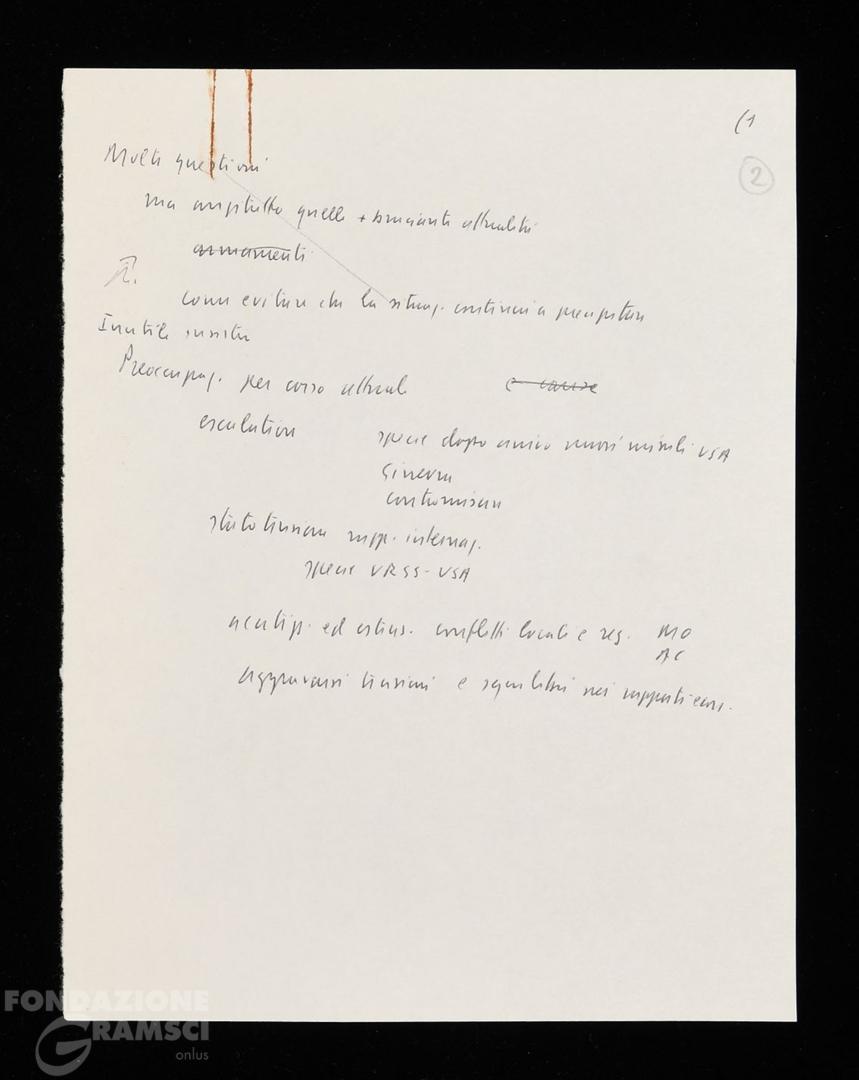 (1
2
Molte questioni
ma anzitutto quelle + bruciante attualità
armamenti
1.
come evitare che la situaz. continui a precipitare
Inutile insistere
Preoccupaz. per corso attuale e cause
escalation specie dopo arrivo nuovi missili USA
Ginevra
contromisure
stato tensione rapp. internaz.
specie URSS-USA
acutizz. ed estens. conflitti locali e reg. MO
AC
aggravarsi tensioni e squilibri nei rapporti econ.
FONDAZIONE
GRAMSCI
onlus